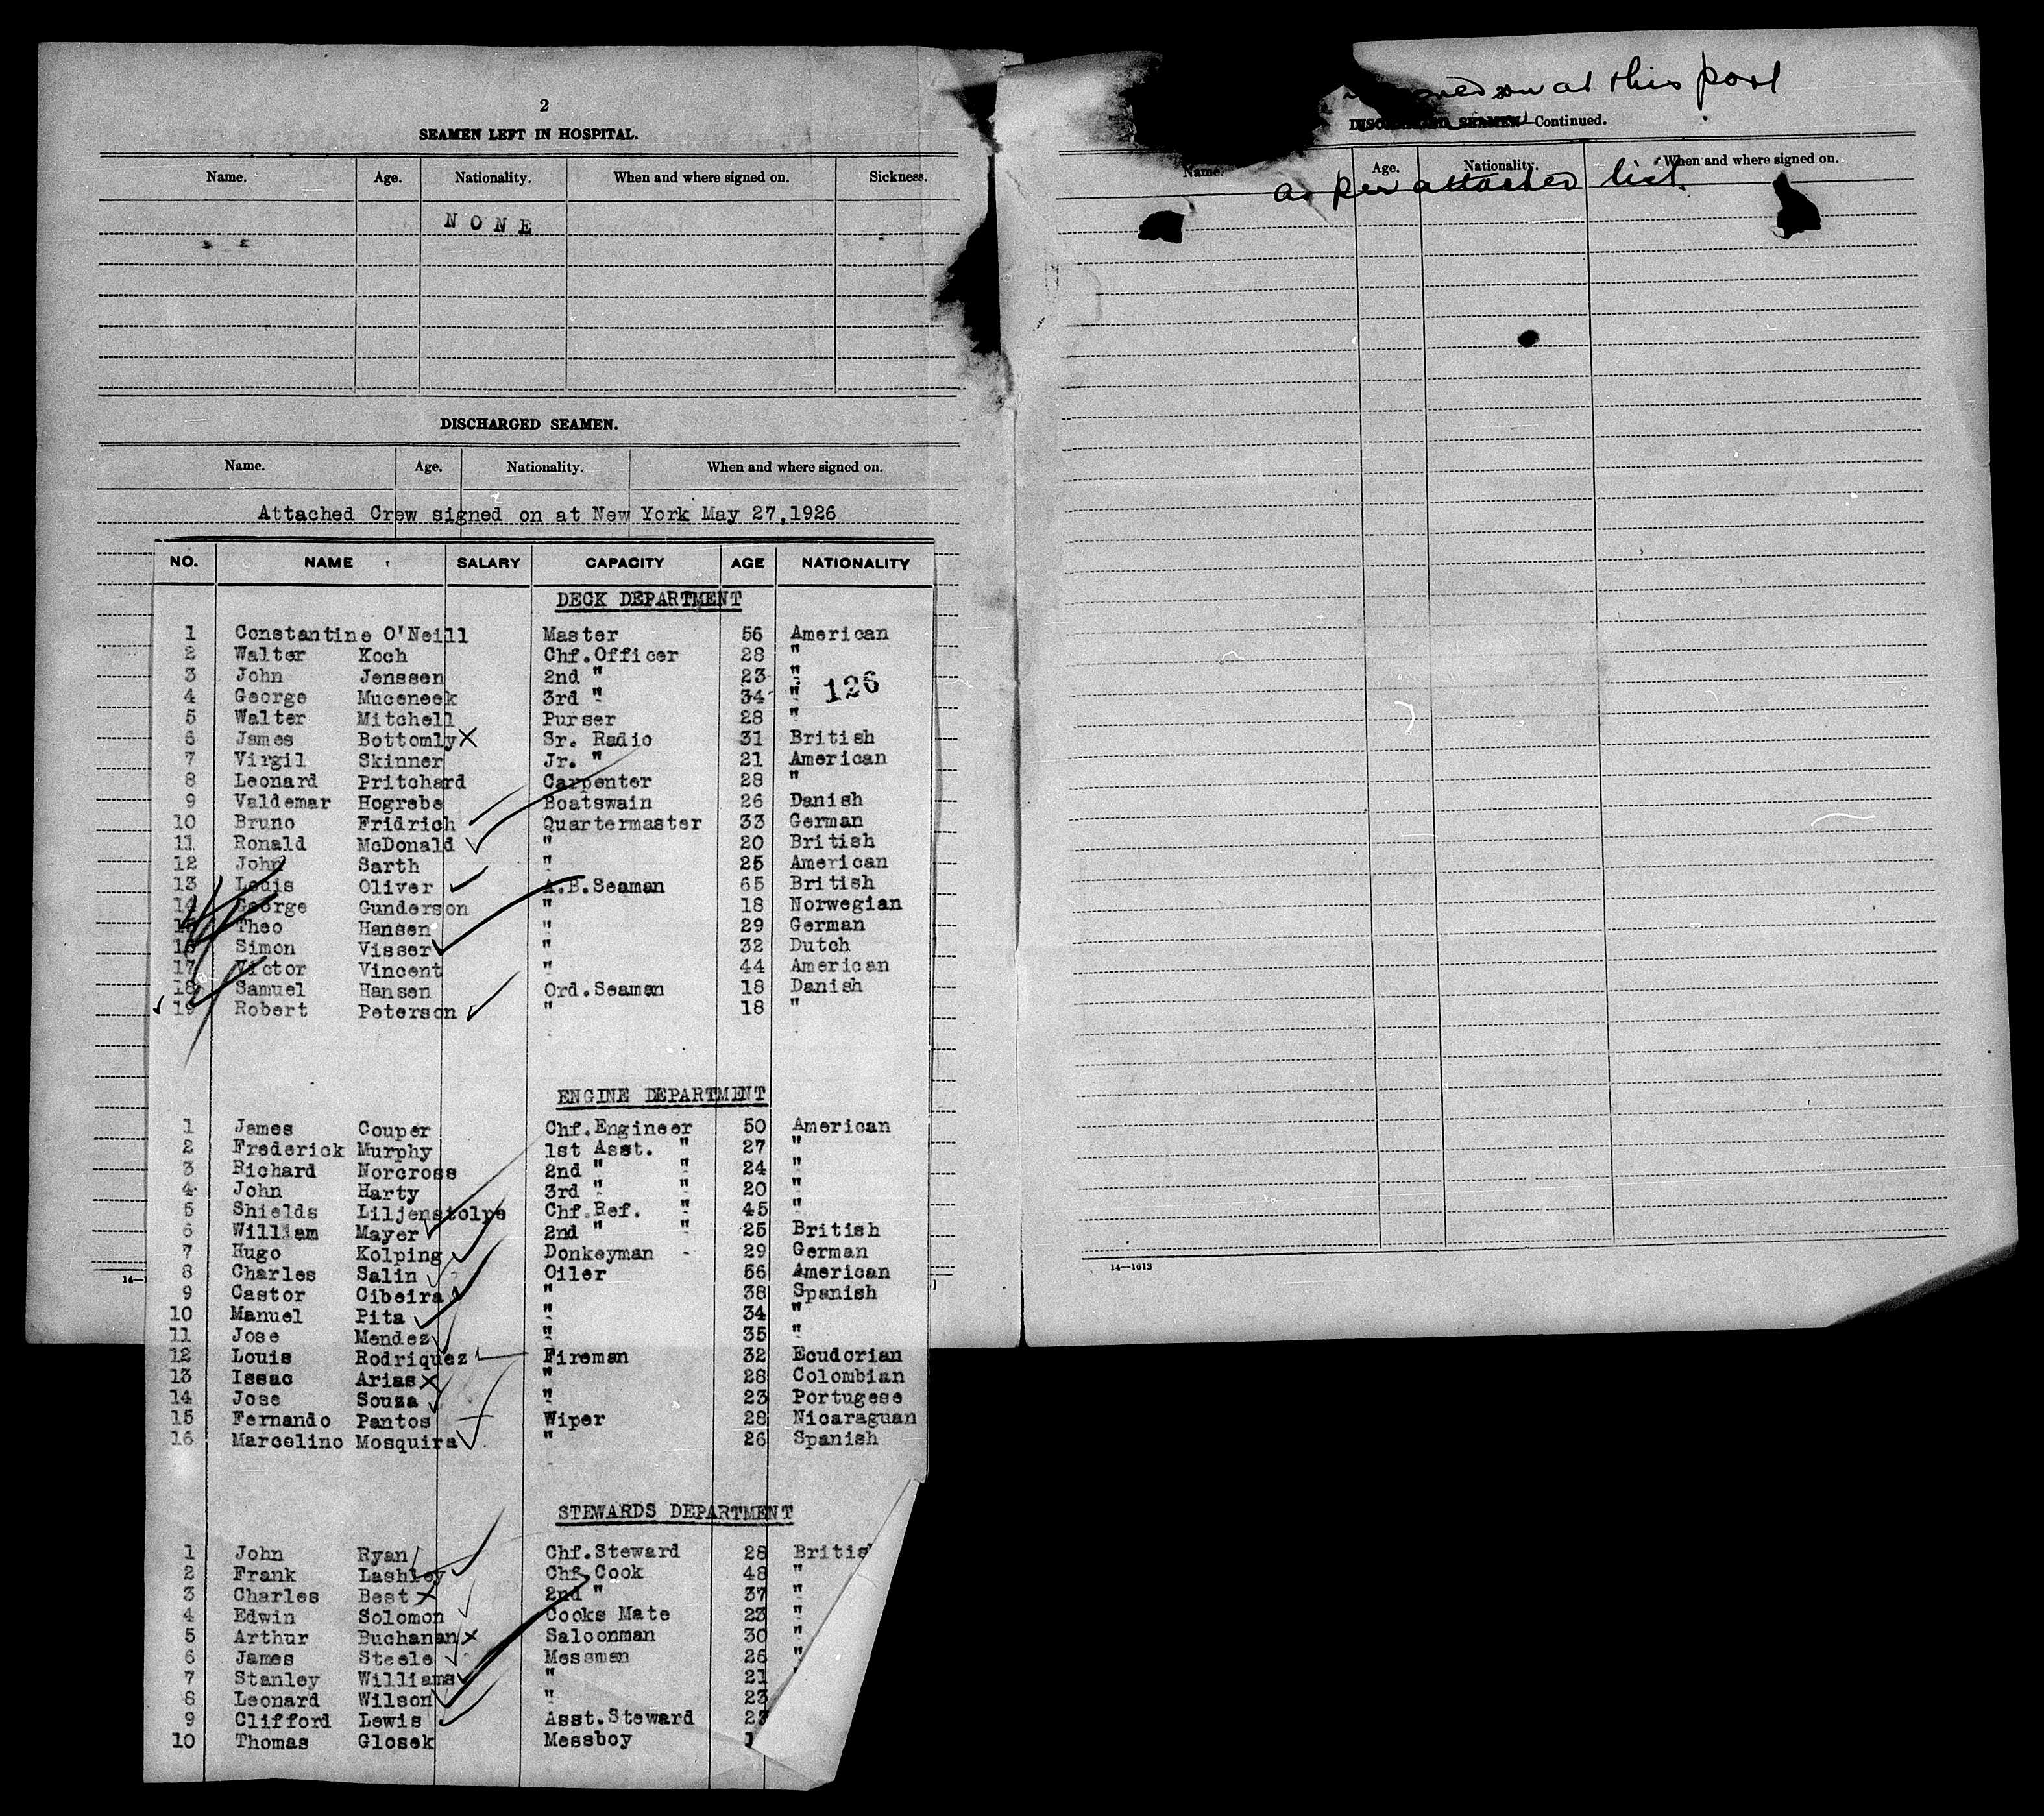 2
SEAMEN LEFT IN HOSPITAL.
Name. Age. Nationality. When and where signed on. Sickness.
NONE
DISCHARGED SEAMEN.
Name. Age. Nationality. When and where signed on.
Attached Crew signed on at New York May 27,1926
NO. NAME SALARY CAPACITY AGE NATIONALITY
DECK DEPARTMENT
1 Constantine O'Neill Master 56 American
2 Walter Koch Chf.Officer 28 "
3 John Jenssen 2nd " 23 "
126
4 George Muceneek 3rd " 34 "
5 Walter Mitchell Purser 28 "
6 James Bottomly X Sr. Radio 31 British
7 Virgil Skinner Jr. " 21 American
8 Leonard Pritchard Carpenter 28 "
9 Valdemar Hogrebe Boatswain 26 Danish
10 Bruno Fridrich Quartermaster 33 German
11 Ronald McDonald " 20 British
12 John Sarth " 25 American
13 Louis Oliver A.B.Seaman 65 British
14 George Gunderson " 18 Norwegian
15 Theo Hansen " 29 German
16 Simon Visser " 32 Dutch
17 Victor Vincent " 44 American
18 Samuel Hansen Ord.Seaman 18 Danish
19 Robert Peterson " 18 "
ENGINE DEPARTMENT
1 James Couper Chf.Engineer 50 American
2 Frederick Murphy 1st Asst. " 27 "
3 Richard Norcross 2nd " " 24 "
4 John Harty 3rd " " 20 "
5 Shields Liljenstolpe Chf.Ref. " 45 "
6 William Mayer 2nd " " 25 British
7 Hugo Kolping Donkeyman - 29 German
8 Charles Salin Oiler 56 American
9 Castor Cibeira " 38 Spanish
10 Manuel Pita " 34 "
11 Jose Mendez " 35 "
12 Louis Rodriquez Fireman 32 Ecudorian
13 Issac Arias X " 28 Colombian
14 Jose Souza " 23 Portugese
15 Fernando Pantos Wiper 28 Nicaraguan
16 Marcelino Mosquira " 26 Spanish
STEWARDS DEPARTMENT
1 John Ryan Chf.Steward 28 Britis
2 Frank Lashley Chf.Cook 48 "
3 Charles Best X 2nd " 37 "
4 Edwin Solomon Cooks Mate 23 "
5 Arthur Buchanan X Saloonman 30 "
6 James Steele Messman 26 "
7 Stanley Williams " 21
8 Leonard Wilson " 23
9 Clifford Lewis Asst.Steward 23
10 Thomas Glosek Messboy 1
14—1
on at this port
DISCHARGED SEAMEN—Continued.
Name. Age. Nationality. When and where signed on.
as per attached list.
14—1613